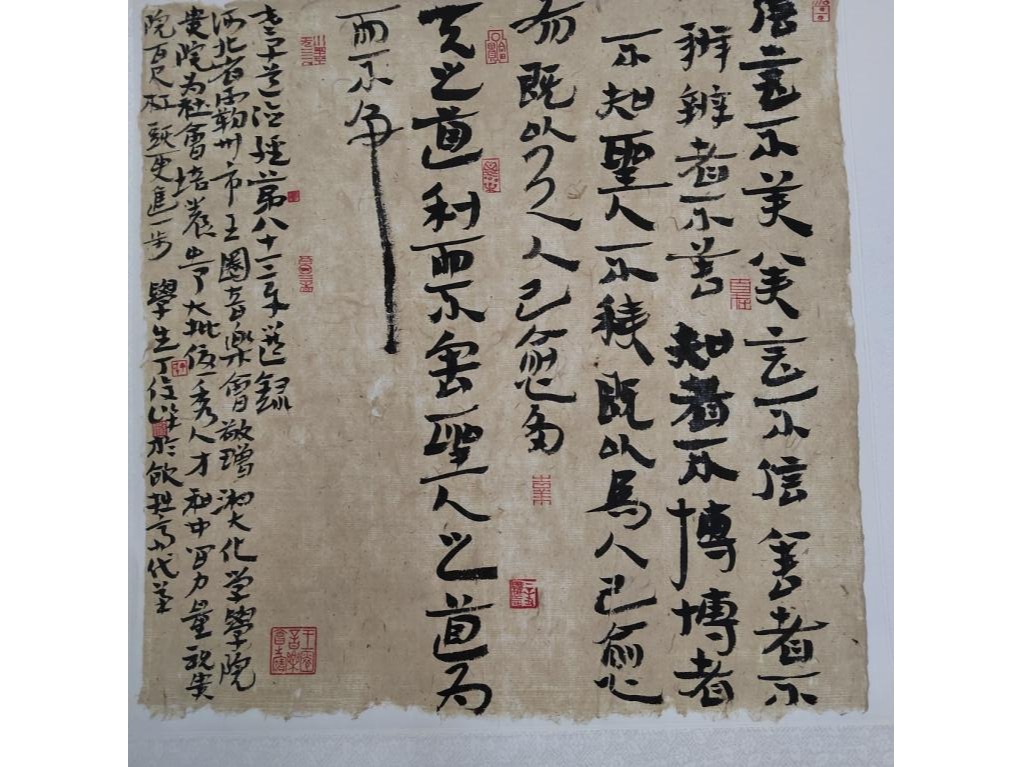 信言不美美言不信善者不
辯辯者不善知者不博博者
不知聖人不積既以為人己愈
有既以與人己愈多
天之道利而不害聖人之道為
而不爭
老子道德經第八十一章選錄
河北省 州市王國音樂會敬贈湘大化学學院
貴院為社會培養出了大批優秀人才和中堅力量祝貴
院百尺杆頭更進一步 學生丁 於